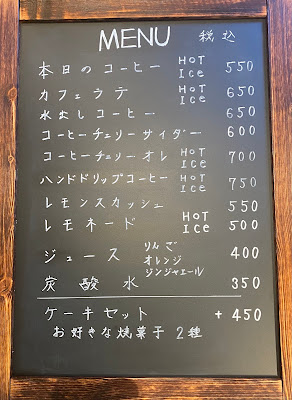 MENU 税込
本日のコーヒー HOT Ice 550
カフェラテ HOT Ice 650
水出しコーヒー 650
コーヒーチェリーサイダー 600
コーヒーチェリーオレ HOT Ice 700
ハンドドリップコーヒー HOT Ice 750
レモンスカッシュ 550
レモネード HOT Ice 500
ジュース りんご オレンジ ジンジャエール 400
炭酸水 350
ケーキセット +450
お好きな焼菓子2種